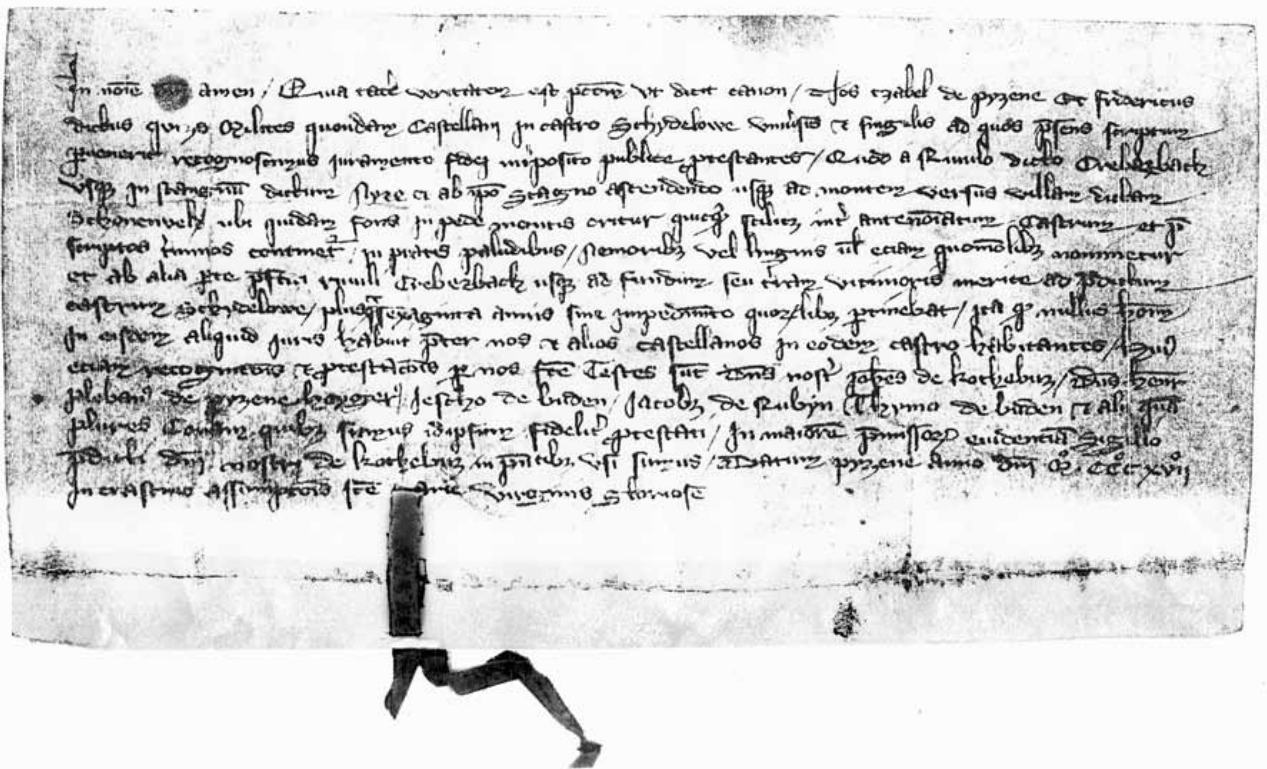 In noīe dñi amen / Quia tacēs veritatem est / vt dicit canon / Nos czabel de pyzene Et fridericus
dictus quizo Milites quondam Castellani in castro Schydelowe vniūsis & singulis ad quos p̄sens scriptum
puenerit recognoscimus iuramento fidei publice ptestantes / Quod a Riuulo dicto Creberback
vsqz in stangnum dictum ab ip̄o Stagno ascendendo usqz ad montem versus villam dictam
Schonenvelt vbi quidam fons in pede montis oritur quicqd int̄ antenoīatum Castrum et p̄
scriptos t̄minos continet̄ / in pratis paludibus / Nemoribz vel lingnis ūl eciam quomōlibz nominetur
et ab alia pte riuuli Creberback usqz ad fundum seu t̄ram ad p̄dictum
castrum Schydelowe / plusq̄ sexaginta annis sine impedimēto ptinebat / ita qd nullus
In eisdem aliquid juris habuit p̄ter nos & alios castellanos in eodem castro habitantes / Huiꝰ
eciam recognicōis & ptestacōis p nos fc̄e Testes sūt dn̄s nost̄ joh̄es de kothebuz / dn̄s henr̄
plebanꝰ de pyzene / Jescho de buden / Jacobꝰ de Rubyn Thymo de buden & alii q̄m
plures Coram quibz sumus idipsum fidelit̄ ptestati / In maiorē p̄missorꝝ euidenciā Sigillo
p̄dicti dn̄i nostri de kothebuz in p̄ntibz vsi sumus / Datum pyzene anno dn̄i Mº CCCº xvijº
In crastino assumpcōis sc̄e marie virginis Gloriose